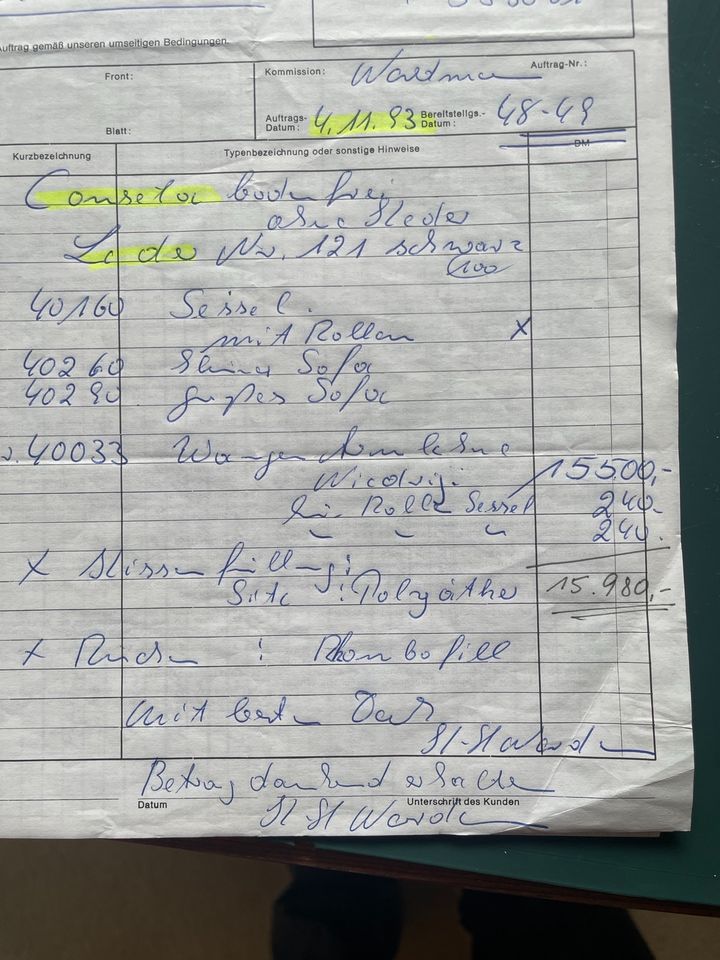 Auftrag gemäß unseren umseitigen Bedingungen.
Front:
Kommission:
Auftrag-Nr.:
Auftrags-Datum: 4.11.93 Bereitstellgs.-Datum: 48-49
Blatt:
Kurzbezeichnung Typenbezeichnung oder sonstige Hinweise DM
Conseta bodenfrei
Leder Nr. 121 schwarz
100
40160 Sessel.
mit Rollen x
40260 kleines Sofa
40290 großes Sofa
40033 Wangenarmlehne
Niedrig. 15500,-
für Rolle Sessel 240.-
" " " 240.-
x Kissenfüllung:
Sitz : Polyäther 15.980,-
x Rücken : Rhombofill
Mit bestem Dank
Betrag dankend erhalten
Datum Unterschrift des Kunden